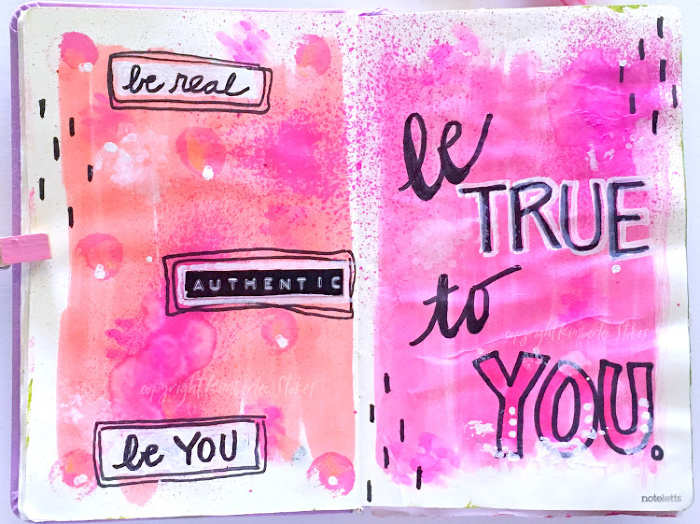 be real
AUTHENTIC
copyright Kimberlee Stokes
be YOU
be
TRUE
to
copyright Kimberlee Stokes
YOU.
noteletts